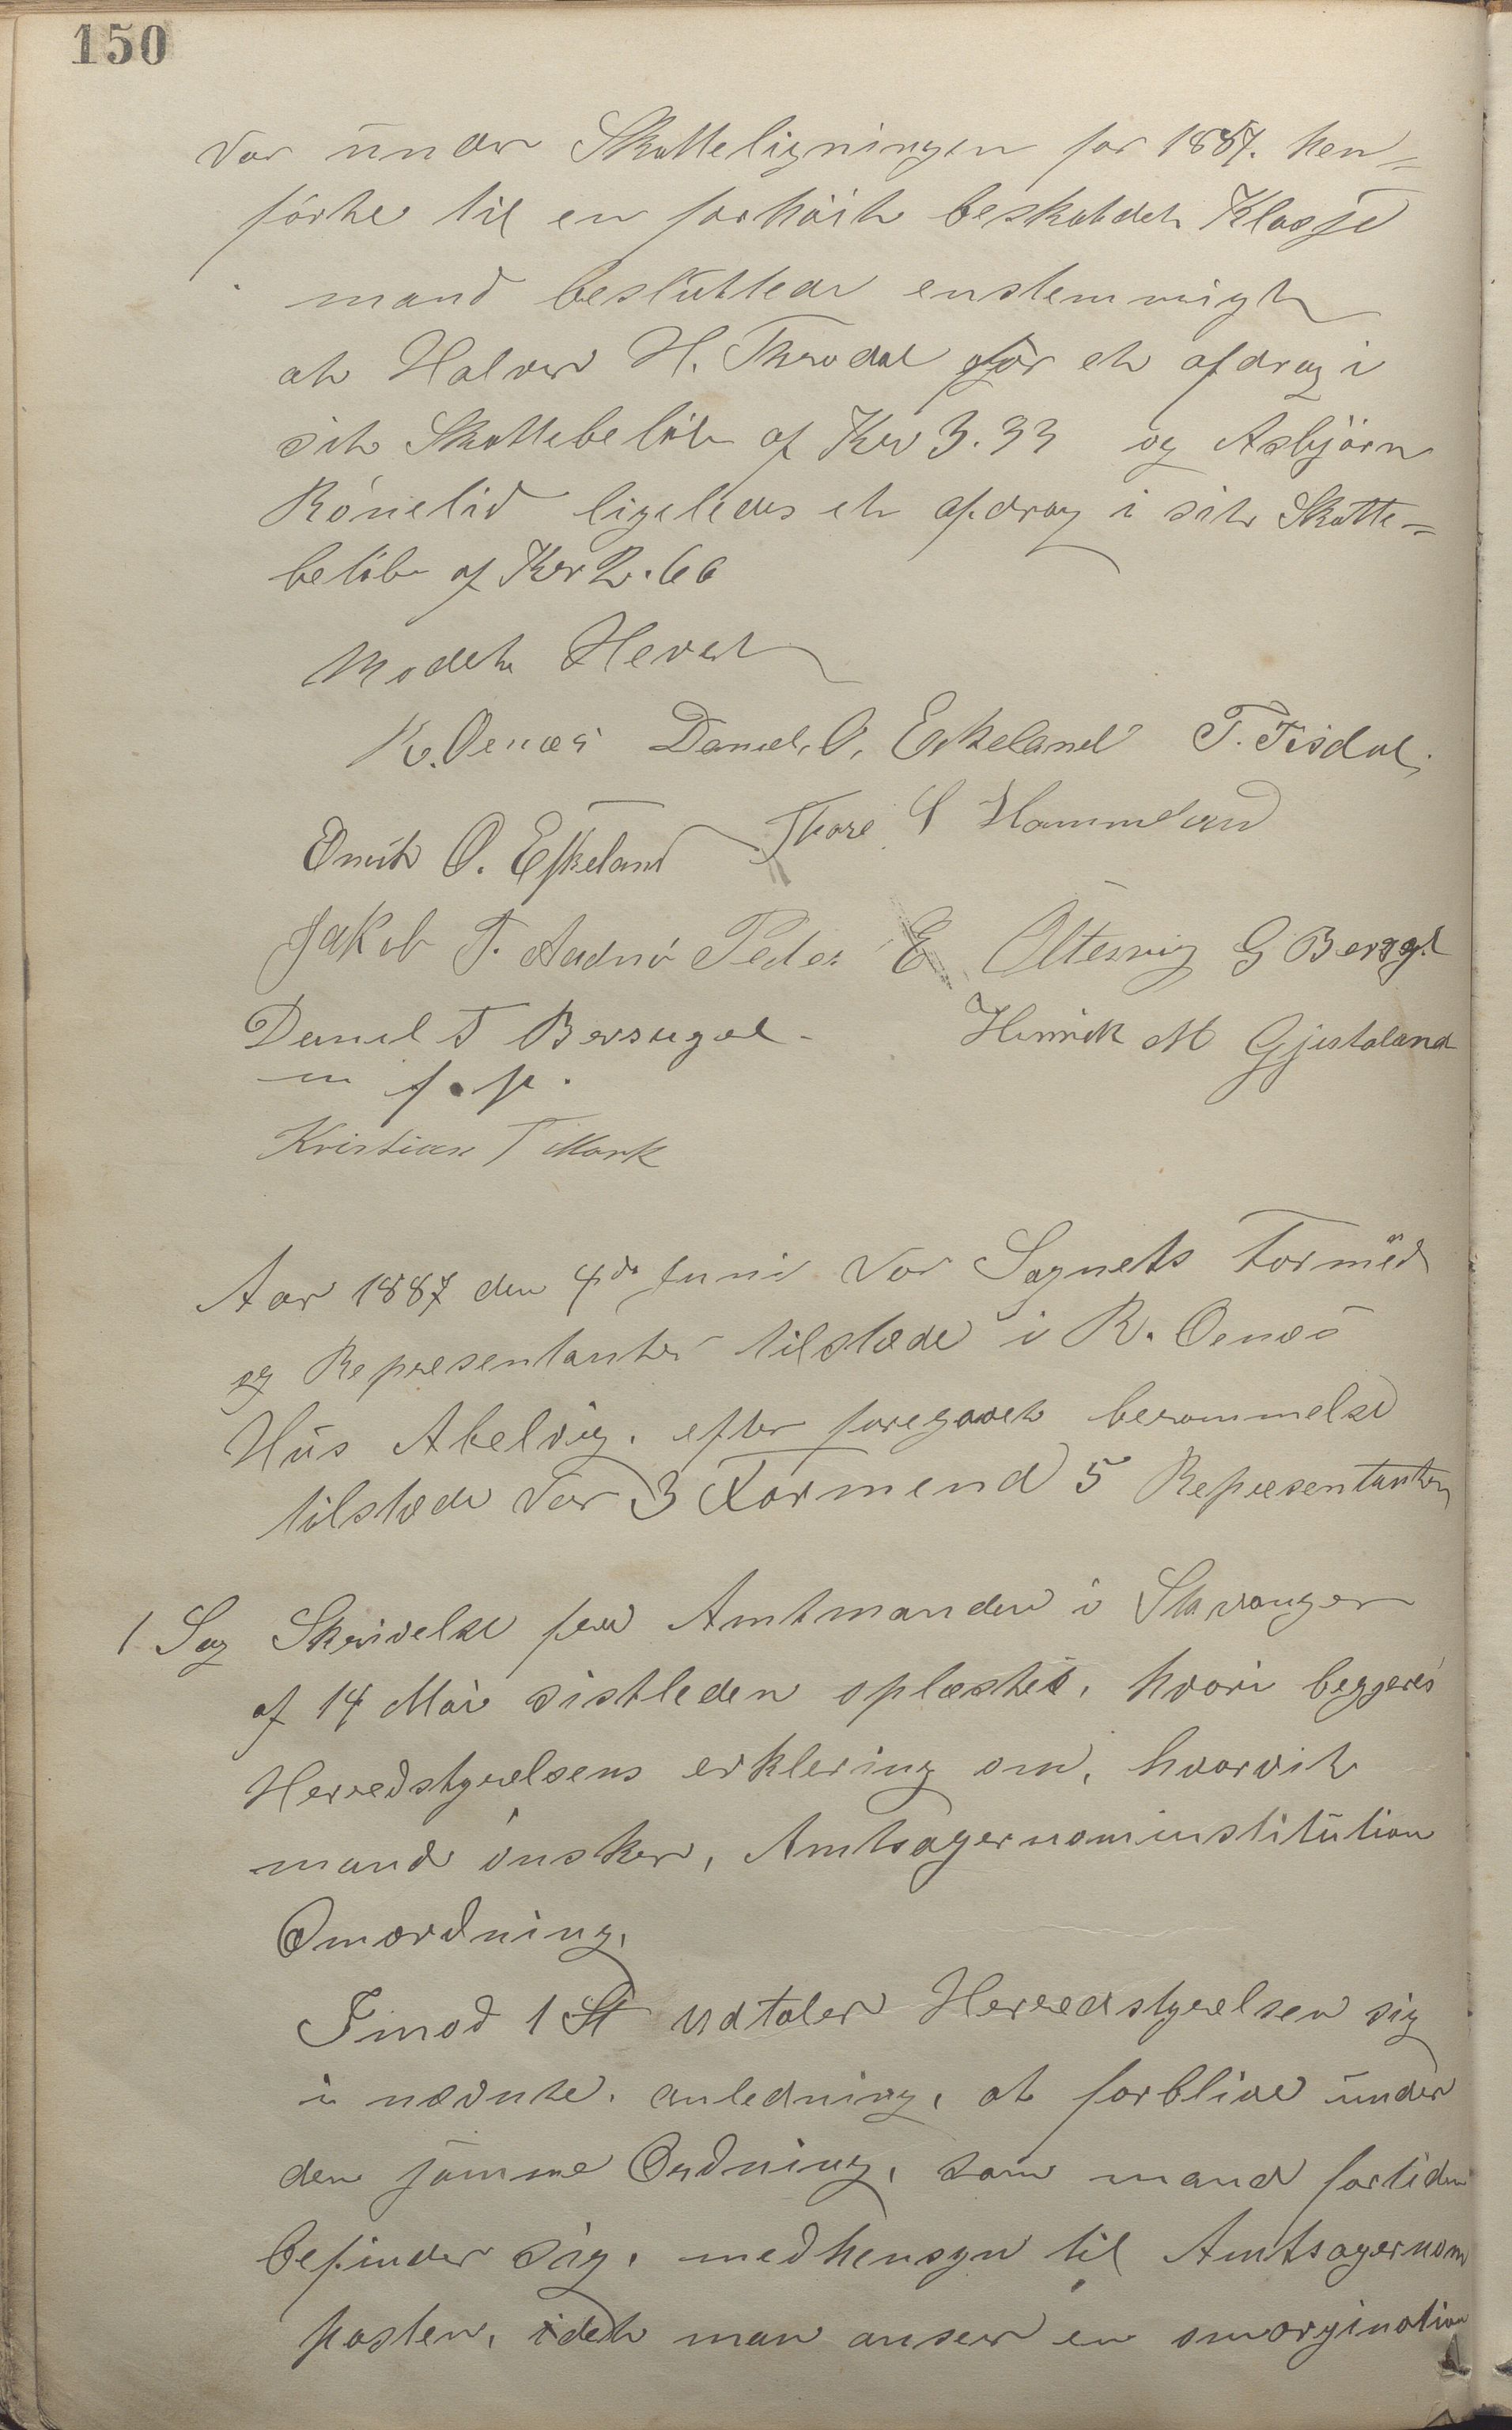 150
var under Skatteligningen for 1887. hen=
förte til en forhöit beskatdet Klasse
mand besluttede enstemmigt
at Halvor H. Trodal for et afdrag i
sit Skattebelöb af Kr 3.33 og Asbjörn
Rönelid ligeledes et afdrag i sit Skatte=
belöb af Kr 2.66
Modet Hevet
R. Oenæs Daniel. O. Eskeland T. Tisdal.
Omit O. Eskeland Thore S Hammeland
Jakob T. Aadnö Peder E Oltesvig G Bersagel
Daniel T Bersagel Henrik M Gjestaland
m f. p.
Kristian T Mark
Aar 1887 den 4de Juni var Sognets Formæd
og Representanter tilstæde i R. Oenæs
Hus Abelvig. efter foregaaet berammelse
tilstæde var 3 Formænd 5 Representanter
1 Sag Skrivelse fra Amtmanden i Stavanger
af 14 Mai sistleden oplæstes, hvori beggeres
Herredstyrelsens erklering om, hvorvit
mand önsker, Amtsagernominstitution
Omordning.
Imod 1 St udtaler Herredstyrelsen sig
i nævnte. anledning, at forblive under
den samme Ordning, som mand fortiden
befinder sig. medhensyn til Amtsagernom
posten, idet man anser en omorgination